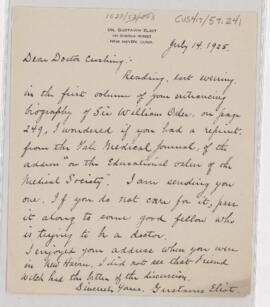 CUS417/57.241
DR. GUSTAVUS ELIOT
NEW HAVEN, CONN.
July 14, 1925.
Dear Doctor Cushing:-
Reading, last evening,
in the first volume of your entrancing
biography of Sir William Osler, on page
249, I wondered if you had a reprint,
from the Yale Medical Journal, of the
address "on the Educational value of the
Medical Society". I am sending you
one. If you do not care for it, pass
it along to some good fellow who
is trying to be a doctor.
I enjoyed your address when you were
in New Haven. I did not see that Friend
Welch had the better of the discussion.
Sincerely Yours, Gustavus Eliot.